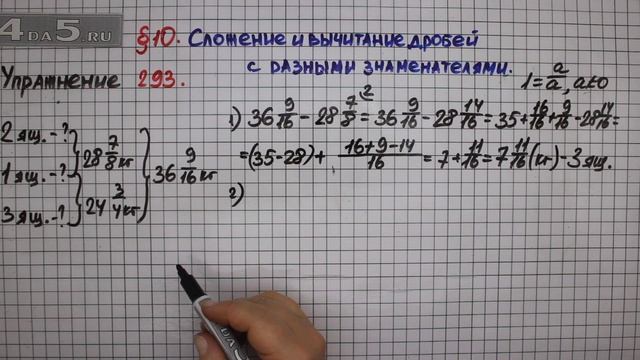 4DA5.RU
§10. Сложение и вычитание дробей
с разными знаменателями.
Упражнение 293.
1 = a/a, a≠0
2 ящ. - ?
1 ящ. - ?
3 ящ. - ?
28 7/8 кг
24 3/4 кг
36 9/16 кг
1) 36 9/16 - 28 7/8 ² = 36 9/16 - 28 14/16 = 35 + 16/16 + 9/16 - 28 14/16 =
= (35-28) + (16+9-14)/16 = 7 + 11/16 = 7 11/16 (кг) - 3 ящ.
2)
4DA5